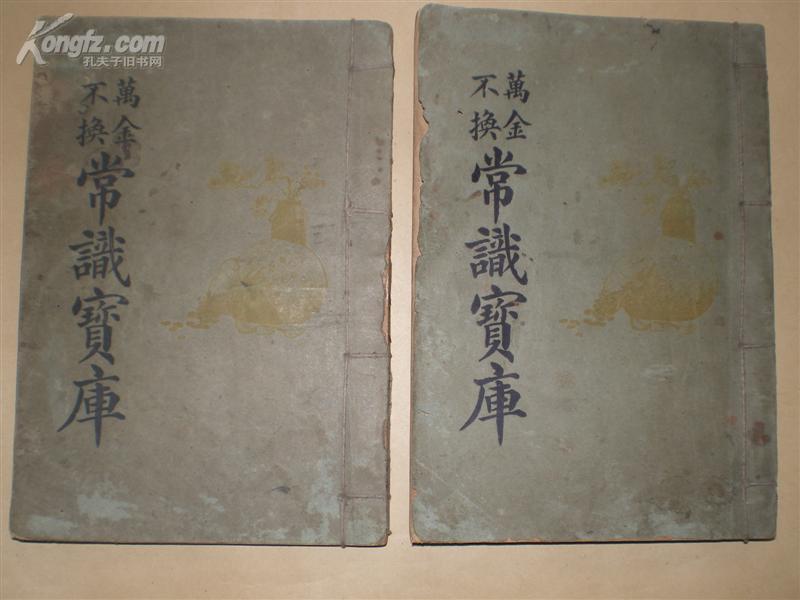 Kongfz.com
孔夫子旧书网
萬金
不換
常識寶庫
萬金
不換
常識寶庫